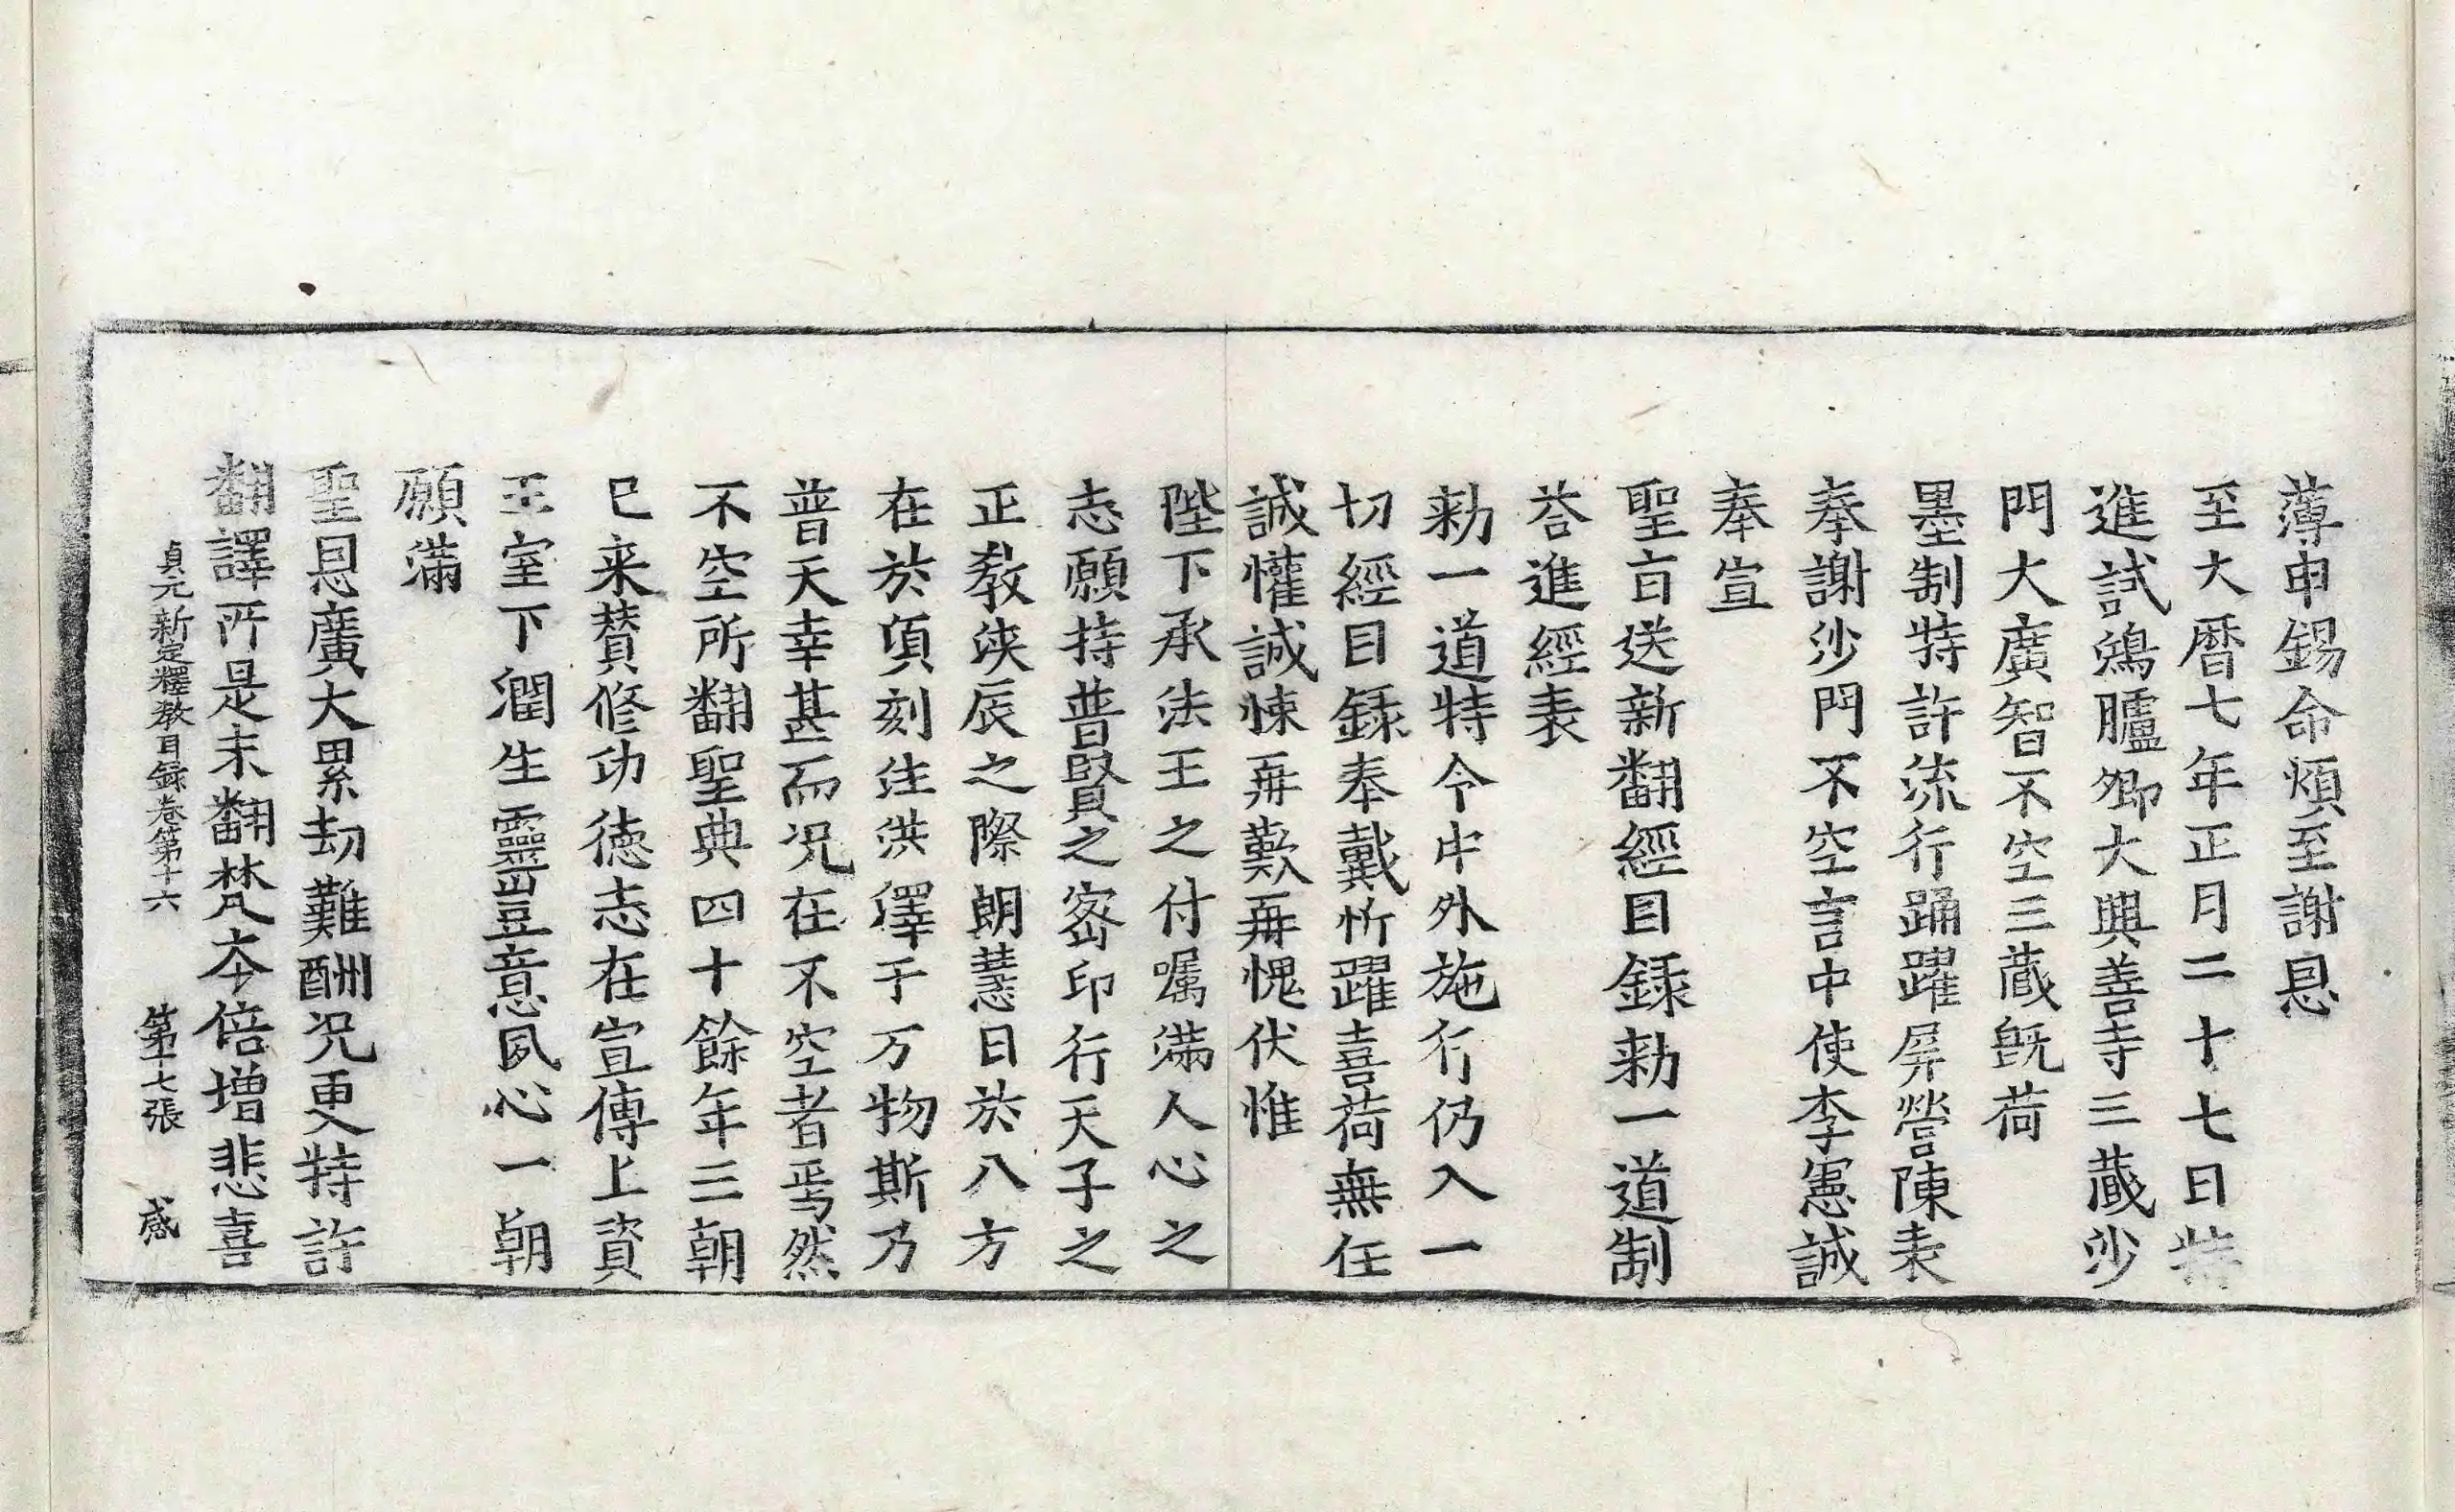 薄申錫命煩至謝恩
至大曆七年正月二十七日特
進試鴻臚卿大興善寺三藏沙
門大廣智不空三藏旣荷
墨制特許流行踊躍屛營陳表
奉謝沙門不空言中使李憲誠
奉宣
聖旨送新翻經目錄勑一道制
荅進經表
勑一道特令中外施行仍入一
切經目錄奉戴忻躍喜荷無任
誠懽誠悚再歎再愧伏惟
陛下承法王之付囑滿人心之
志願持普賢之密印行天子之
正教浹辰之際朗慧日於八方
在於頃刻注洪澤于万物斯乃
普天幸甚而况在不空者焉然
不空所翻聖典四十餘年三朝
已来賛修功德志在宣傳上資
王室下潤生靈豈意夙心一朝
願滿
聖恩廣大累劫難酬况更特許
翻譯所是未翻梵夲倍增悲喜
貞元新定釋教目錄卷第十六　第十七張　感